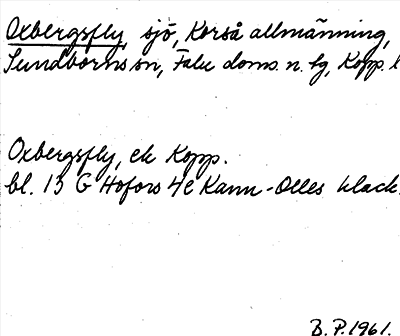 Oxbergsfly, sjö, Korså allmänning,
Sundborns sn, Falu doms. n. tg, Kopp. l
Oxbergsfly, ek Kopp.
bl. 13 G Hofors 4e Kann-Olles klack.
B.P. 1961.